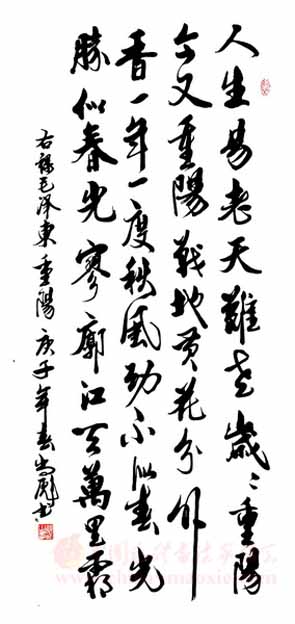 人生易老天難老歲〻重陽
今又重陽戰地黄花分外
香一年一度秋風勁不似春光
勝似春光寥廓江天萬里霜
右録毛泽東重陽庚子年春